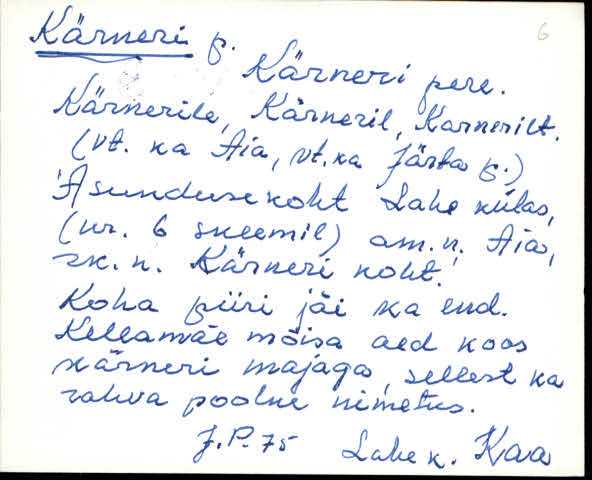 6
Kärneri p.
Kärneri pere.
Kärnerile, Kärneril, Kärnerilt.
(vt. ka Aia, vt. ka Järta p.)
Asundusekoht Lahe külas,
(nr. 6 skeemil) am. n. Aia,
rk. n. Kärneri koht.
Koha piiri jäi ka end.
Kellamäe mõisa aed koos
kärneri majaga, sellest ka
rahva poolne nimetus.
J.P. 75 Lahe k. Kaa